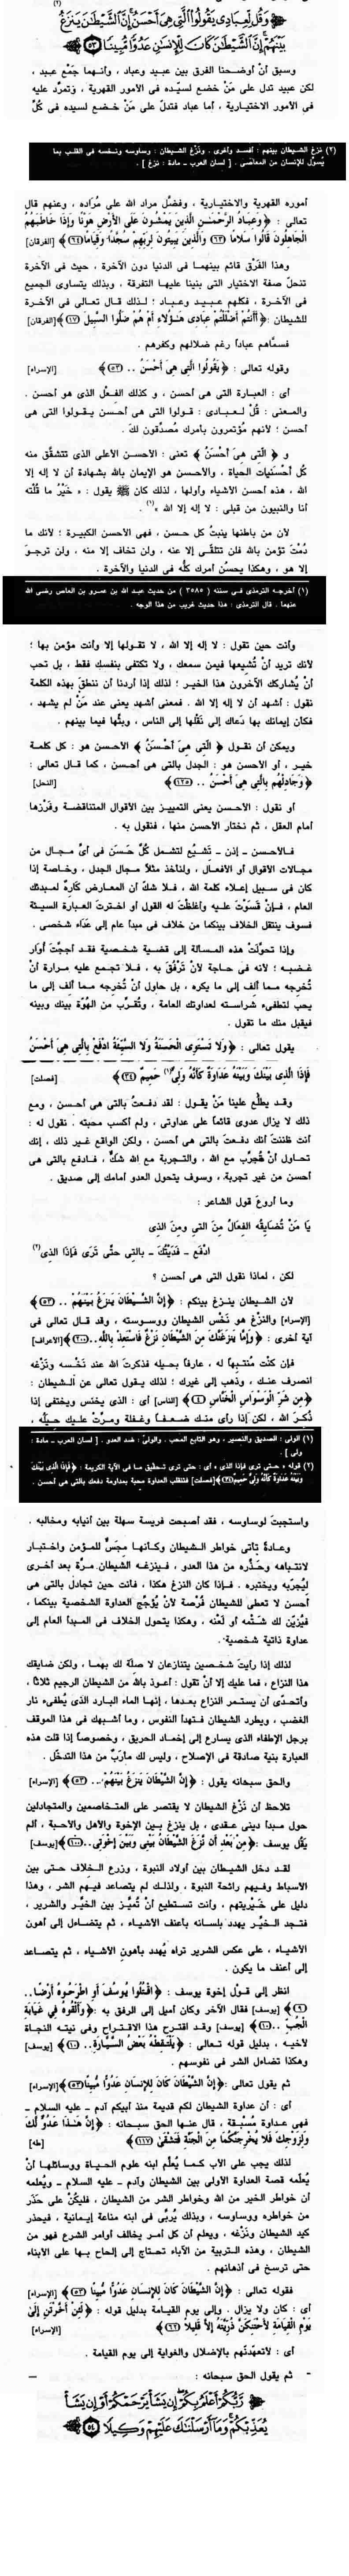 (٢)
وَقُل لِّعِبَادِي يَقُولُوا الَّتِي هِيَ أَحْسَنُ إِنَّ الشَّيْطَانَ يَنزَغُ
بَيْنَهُمْ إِنَّ الشَّيْطَانَ كَانَ لِلْإِنسَانِ عَدُوًّا مُّبِينًا ﴿٥٣﴾
وسبق أنْ أوضحنا الفرق بين عبيد وعباد ، وأنهما جَمْع عبد ،
لكن عبيد تدل على مَنْ خضع لسيّده في الأمور القهرية ، وتمرَّد عليه
في الأمور الاختيارية ، أما عباد فتدلّ على مَنْ خضع لسيده في كُلِّ
(٢) نزغ الشيطان بينهم : أفسد وأغرى . ونَزْغ الشيطان : وساوسه ونخسه في القلب بما
يُسوِّل للإنسان من المعاصي . [ لسان العرب - مادة : نزغ ] .
أموره القهرية والاختيارية ، وفضَّل مراد الله على مُرَاده ، وعنهم قال
تعالى : ﴿ وَعِبَادُ الرَّحْمَـٰنِ الَّذِينَ يَمْشُونَ عَلَى الأَرْضِ هَوْنًا وَإِذَا خَاطَبَهُمُ
الْجَاهِلُونَ قَالُوا سَلامًا ﴿٦٣﴾ وَالَّذِينَ يَبِيتُونَ لِرَبِّهِمْ سُجَّدًا وَقِيَامًا ﴿٦٤﴾ ﴾ [الفرقان]
وهذا الفَرْق قائم بينهما في الدنيا دون الآخرة ، حيث في الآخرة
تنحلّ صفة الاختيار التي بنينا عليها التفرقة ، وبذلك يتساوى الجميع
في الآخرة ، فكلهم عبيد وعباد ؛ لذلك قال تعالى في الآخرة
للشيطان : ﴿ أَأَنتُمْ أَضْلَلْتُمْ عِبَادِي هَـٰؤُلاءِ أَمْ هُمْ ضَلُّوا السَّبِيلَ ﴿١٧﴾ ﴾ [الفرقان]
فسمَّاهم عباداً رغم ضلالهم وكفرهم .
وقوله تعالى : ﴿ يَقُولُوا الَّتِي هِيَ أَحْسَنُ .. ﴿٥٣﴾ ﴾ [الإسراء]
أي : العبارة التي هي أحسن ، و كذلك الفعْل الذي هو أحسن .
والمعنى : قُلْ لعبادي : قولوا التي هي أحسن يقولوا التي هي
أحسن ؛ لأنهم مُؤتمرون بأمرك مُصدِّقون لكَ .
و ﴿ الَّتِي هِيَ أَحْسَنُ ﴾ تعني : الأحسن الأعلى الذي تتشقَّق منه
كُل أحسْنيات الحياة ، والأحسن هو الإيمان بالله بشهادة أن لا إله إلا
الله ، هذه أحسن الأشياء وأولها ، لذلك كان ﷺ يقول : « خَيْرُ ما قُلْته
أنا والنبيون من قبلي : لا إله إلا الله »(١) .
لأن من باطنها ينبتُ كل حسن ، فهي الأحسن الكبيرة ؛ لأنك ما
دُمْتَ تؤمن بالله فلن تتلقَّى إلا عنه ، ولن تخاف إلا منه ، ولن ترجوَ
إلا هو ، وهكذا يحسُن أمرك كلّه في الدنيا والآخرة .
(١) أخرجه الترمذي في سننه ( ٣٥٨٥ ) من حديث عبد الله بن عمرو بن العاص رضي الله
عنهما . قال الترمذي : هذا حديث غريب من هذا الوجه .
وأنت حين تقول : لا إله إلا الله ، لا تقولها إلا وأنت مؤمن بها ؛
لأنك تريد أنْ تُشيعها فيمن سمعك ، ولا تكتفي بنفسك فقط ، بل تحب
أنْ يُشاركك الآخرون هذا الخير ؛ لذلك إذا أردنا أن ننطق بهذه الكلمة
نقول : أشهد أن لا إله إلا الله . فمعنى أشهد يعني عند مَنْ لم يشهد ،
فكأن إيمانك بها دَعاك إلى نَقْلها إلى الناس ، وبثِّها فيما بينهم .
ويمكن أن نقول ﴿ الَّتِي هِيَ أَحْسَنُ ﴾ الأحسن هو : كل كلمة
خير ، أو الأحسن هو : الجدل بالتي هي أحسن ، كما قال تعالى :
﴿ وَجَادِلْهُم بِالَّتِي هِيَ أَحْسَنُ .. ﴿١٢٥﴾ ﴾ [النحل]
أو نقول : الأحسن يعني التمييز بين الأقوال المتناقضة وفَرْزها
أمام العقل ، ثم نختار الأحسن منها ، فنقول به .
فالأحسن - إذن - تَشيُع لتشمل كُلَّ حَسَن في أيِّ مجال من
مجالات الأقوال أو الأفعال ، ولنأخذ مثلاً مجال الجدل ، وخاصة إذا
كان في سبيل إعلاء كلمة الله ، فلا شكَّ أن المعارض كَارِهٌ لمبدئك
العام ، فإنْ قَسَوْتَ عليه وأغلظتَ له القول أو اخترتَ العبارة السيئة
فسوف ينتقل الخلاف بينكما من خلاف في مبدأ عام إلى عَدَاء شخصي .
وإذا تحوَّلتْ هذه المسألة إلى قضية شخصية فقد أججَّتَ أُوَار
غضبه ؛ لأنه في حاجة لأنْ تَرْفُقَ به ، فلا تجمع عليه مرارة أنْ
تُخرجه مما ألف إلى ما يكره ، بل حاول أنْ تُخرجه مما ألف إلى ما
يحب لتطفيء شراسته لعداوتك العامة ، وتُقرِّب من الهُوّة بينك وبينه
فيقبل منك ما تقول .
يقول تعالى : ﴿ وَلا تَسْتَوِي الْحَسَنَةُ وَلا السَّيِّئَةُ ادْفَعْ بِالَّتِي هِيَ أَحْسَنُ
فَإِذَا الَّذِي بَيْنَكَ وَبَيْنَهُ عَدَاوَةٌ كَأَنَّهُ وَلِيٌّ(١) حَمِيمٌ ﴿٣٤﴾ ﴾ [فصلت]
وقد يطلُع علينا مَنْ يقول : لقد دفعتُ بالتي هي أحسن ، ومع
ذلك لا يزال عدوى قائماً على عداوتي ، ولم أكسب محبته . نقول له :
أنت ظننتَ أنك دفعتَ بالتي هي أحسن ، ولكن الواقع غير ذلك ، إنك
تحاول أنْ تُجرِّب مع الله ، والتجربة مع الله شكٌّ ، فادفع بالتي هي
أحسن من غير تجربة ، وسوف يتحول العدو أمامك إلى صديق .
وما أروعَ قول الشاعر :
يَا مَنْ تُضَايِقُه الفِعَالُ مِنَ التي ومِنَ الذي
ادْفَعْ - فَدَيْتُكَ - بالتي حتَّى تَرَى فَإذَا الذي(٢)
لكن ، لماذا نقول التي هي أحسن ؟
لأن الشيطان ينزغ بينكم : ﴿ إِنَّ الشَّيْطَانَ يَنزَغُ بَيْنَهُمْ .. ﴿٥٣﴾ ﴾
[الإسراء] والنزْغ هو نَخْس الشيطان ووسوسته ، وقد قال تعالى في
آية أخرى : ﴿ وَإِمَّا يَنزَغَنَّكَ مِنَ الشَّيْطَانِ نَزْغٌ فَاسْتَعِذْ بِاللَّهِ .. ﴿٢٠٠﴾ ﴾ [الأعراف]
فإن كنتَ مُتنبِّهاً له ، عارفاً بحيله فذكرتَ الله عند نَخْسه ونَزْغه
انصرف عنك ، وذهب إلى غيرك ؛ لذلك يقول تعالى عن الشيطان :
﴿ مِن شَرِّ الْوَسْوَاسِ الْخَنَّاسِ ﴿٤﴾ ﴾ [الناس] أي : الذي يخنس ويختفي إذا
ذُكرَ الله ، لكن إذا رأى منك ضعفاً وغفلة ومرَّتْ عليك حيلُه ،
(١) الولي : الصديق والنصير ، وهو التابع المحب . والوليّ : ضد العدو . [ لسان العرب - مادة :
ولي ] .
(٢) قوله « حتى ترى فإذا الذي » أي : حتى ترى تحقيق ما في الآية الكريمة : ﴿ فَإِذَا الَّذِي بَيْنَكَ
وَبَيْنَهُ عَدَاوَةٌ كَأَنَّهُ وَلِيٌّ حَمِيمٌ ﴿٣٤﴾ ﴾ [فصلت] فتنقلب العداوة محبة بمداومة دفعك بالتي هي أحسن .
واستجبتَ لوساوسه ، فقد أصبحتَ فريسة سهلة بين أنيابه ومخالبه .
وعادةً تأتي خواطر الشيطان وكأنها مجسٌّ للمؤمن واختبار
لانتباهه وحَذَره من هذا العدو ، فينزغه الشيطان مرة بعد أخرى
ليُجرِّبه ويختبره . فإذا كان النزغ هكذا ، فأنت حين تجادل بالتي هي
أحسن لا تعطي للشيطان فُرْصة لأنْ يُؤجِّج العداوة الشخصية بينكما ،
فيُزيِّن لك شَتْمه أو لَعْنه ، وهكذا يتحول الخلاف في المبدأ العام إلى
عداوة ذاتية شخصية .
لذلك إذا رأيتَ شخصين يتنازعان لا صِلَة لك بهما ، ولكن ضايقك
هذا النزاع ، فما عليك إلا أنْ تقول : أعوذ بالله من الشيطان الرجيم ثلاثاً ،
وأتحدى أنْ يستمر النزاع بعدها ، إنها الماء البارد الذي يُطفيء نار
الغضب ، ويطرد الشيطان فتهدأ النفوس ، وما أشبهك في هذا الموقف
برجل الإطفاء الذي يسارع إلى إخماد الحريق ، وخصوصاً إذا قلت هذه
العبارة بنية صادقة في الإصلاح ، وليس لك مأربٌ من هذا التدخُّل .
والحق سبحانه يقول : ﴿ إِنَّ الشَّيْطَانَ يَنزَغُ بَيْنَهُمْ .. ﴿٥٣﴾ ﴾ [الإسراء]
تلاحظ أن نَزْغ الشيطان لا يقتصر على المتخاصمين والمتجادلين
حول مبدأ ديني عقدي ، بل ينزغ بين الإخوة والأهل والأحبة ، ألم
يَقُل يوسف : ﴿ مِنْ بَعْدِ أَن نَّزَغَ الشَّيْطَانُ بَيْنِي وَبَيْنَ إِخْوَتِي .. ﴿١٠٠﴾ ﴾ [يوسف]
لقد دخل الشيطان بين أولاد النبوة ، وزرع الخلاف حتى بين
الأسباط وفيهم رائحة النبوة ، ولذلك لم يتصاعد فيهم الشر ، وهذا
دليل على خَيْريتهم ، وأنت تستطيع أنْ تُميِّز بين الخيِّر والشرير ،
فتجد الخيِّر يهدد بلسانه بأعنف الأشياء ، ثم يتضاءل إلى أهون
الأشياء ، على عكس الشرير تراه يُهدد بأهون الأشياء ، ثم يتصاعد
إلى أعنف ما يكون .
انظر إلى قَوْل إخوة يوسف : ﴿ اقْتُلُوا يُوسُفَ أَوِ اطْرَحُوهُ أَرْضًا ..
﴿٩﴾ ﴾ [يوسف] فقال الآخر وكان أميل إلى الرفق به : ﴿ وَأَلْقُوهُ فِي غَيَابَةِ
الْجُبِّ .. ﴿١٠﴾ ﴾ [يوسف] وقد اقترح هذا الاقتراح وفي نيته النجاة
لأخيه ، بدليل قوله تعالى : ﴿ يَلْتَقِطْهُ بَعْضُ السَّيَّارَةِ .. ﴿١٠﴾ ﴾ [يوسف]
وهكذا تضاءل الشر في نفوسهم .
ثم يقول تعالى : ﴿ إِنَّ الشَّيْطَانَ كَانَ لِلإِنسَانِ عَدُوًّا مُّبِينًا ﴿٥٣﴾ ﴾ [الإسراء]
أي : أن عداوة الشيطان لكم قديمة منذ أبيكم آدم - عليه السلام -
فهي عداوة مُسْبقة ، قال عنها الحق سبحانه : ﴿ إِنَّ هَـٰذَا عَدُوٌّ لَّكَ
وَلِزَوْجِكَ فَلا يُخْرِجَنَّكُمَا مِنَ الْجَنَّةِ فَتَشْقَىٰ ﴿١١٧﴾ ﴾ [طه]
لذلك يجب على الأب كما يُعلِّم ابنه علوم الحياة ووسائلها أنْ
يُعلِّمه قصة العداوة الأولى بين الشيطان وآدم - عليه السلام - ويُعلمه
أن خواطر الخير من الله وخواطر الشر من الشيطان ، فليكُنْ على حَذَر
من خواطره ووساوسه ، وبذلك يُربَّى في ابنه مناعة إيمانية ، فيحذر
كيد الشيطان ونَزْغه ، ويعلم أن كل أمر يخالف أوامر الشرع فهو من
الشيطان ، وهذه التربية من الآباء تحتاج إلى إلحاح بها على الأبناء
حتى ترسخ في أذهانهم .
فقوله تعالى : ﴿ إِنَّ الشَّيْطَانَ كَانَ لِلإِنسَانِ عَدُوًّا مُّبِينًا ﴿٥٣﴾ ﴾ [الإسراء]
أي : كان ولا يزال . وإلى يوم القيامة بدليل قوله : ﴿ لَئِنْ أَخَّرْتَنِ إِلَىٰ
يَوْمِ الْقِيَامَةِ لأَحْتَنِكَنَّ ذُرِّيَّتَهُ إِلاَّ قَلِيلاً ﴿٦٢﴾ ﴾ [الإسراء]
أي : لأتعهدنّهم بالإضلال والغواية إلى يوم القيامة .
- ثم يقول الحق سبحانه :
رَّبُّكُمْ أَعْلَمُ بِكُمْ إِن يَشَأْ يَرْحَمْكُمْ أَوْ إِن يَشَأْ
يُعَذِّبْكُمْ وَمَا أَرْسَلْنَاكَ عَلَيْهِمْ وَكِيلًا ﴿٥٤﴾